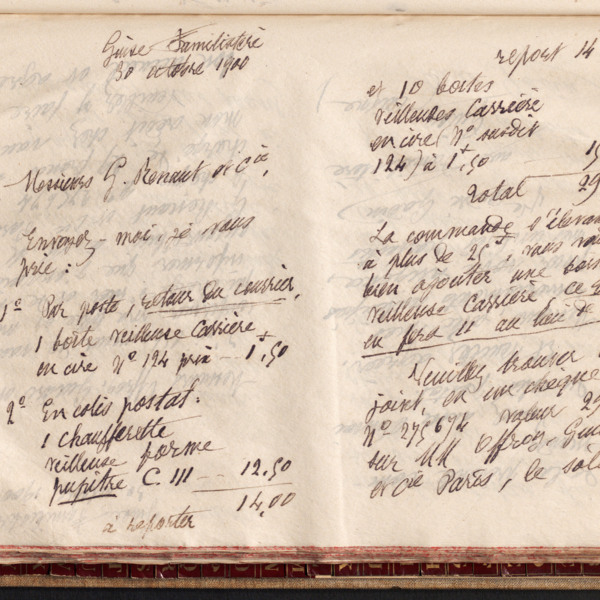 Guise Familistère
30 octobre 1900
Messieurs G. Renaut et Cie,
Envoyez-moi, je vous
prie :
1° Par poste, retour du courrier,
1 boîte veilleuse Carrière
en cire N° 124 prix -- 1f,50
2° En colis postal:
1 chaufferette
veilleuse forme
pupitre C. III -- 12.50
14,00
à reporter
report 14
et 10 boites
veilleuses Carrière
en cire (N° susdit
124) à 1f,50
15
Total 29
La commande s'élevant
à plus de 25f, vous
bien ajouter une
veilleuse Carrière, ce
en fera 11 au lieu de
Veuillez trouver
joint, en un chèque
N° 275674 valeur 29
sur MM Offroy, Gui
et Cie Paris, le sol